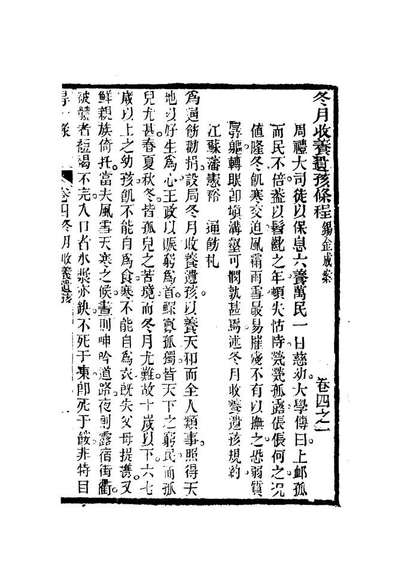 冬月收養遺孩條程 錫金成案 卷四之二
周禮大司徒以保息六養萬民一曰慈幼大學傳曰上卹孤
而民不倍蓋以髫齓之年頓失怙恃煢煢孤露倀倀何之况
値隆冬飢寒交迫風霜雨雪最易摧殘不有以撫之恐弱質
孱軀轉眼卽塡溝壑可憫孰甚焉述冬月收養遺孩規約
江蘇藩憲裕 通飭札
爲通飭勸捐設局冬月收養遺孩以養天和而全人類事照得天
地以好生爲心王政以賑窮爲首鰥寡孤獨皆天下之窮民而孤
兒尤甚春夏秋冬皆孤兒之苦境而冬月尤難故十歲以下六七
歲以上之幼孩飢不能自爲食寒不能自爲衣旣失父母提攜又
鮮親族倚托當夫風雪天寒之候晝則呻吟道路夜則露宿街衢
被體者短褐不完入口者水漿亦缺不死于凍卽死于餒非特目
得一錄 卷四冬月收養遺孩 一